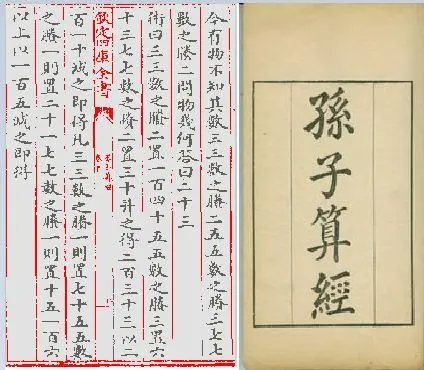 孫子算經
今有物不知其數三三數之賸二五五數之賸三七七
數之賸二問物幾何答曰二十三
術曰三三數之賸二置一百四十五五數之賸三置六
十三七七數之賸二置三十并之得二百三十三以二
欽定四庫全書
百一十減之即得凡三三數之賸一則置七十五五數
之賸一則置二十一七七數之賸一則置十五一百六
以上以一百五減之即得